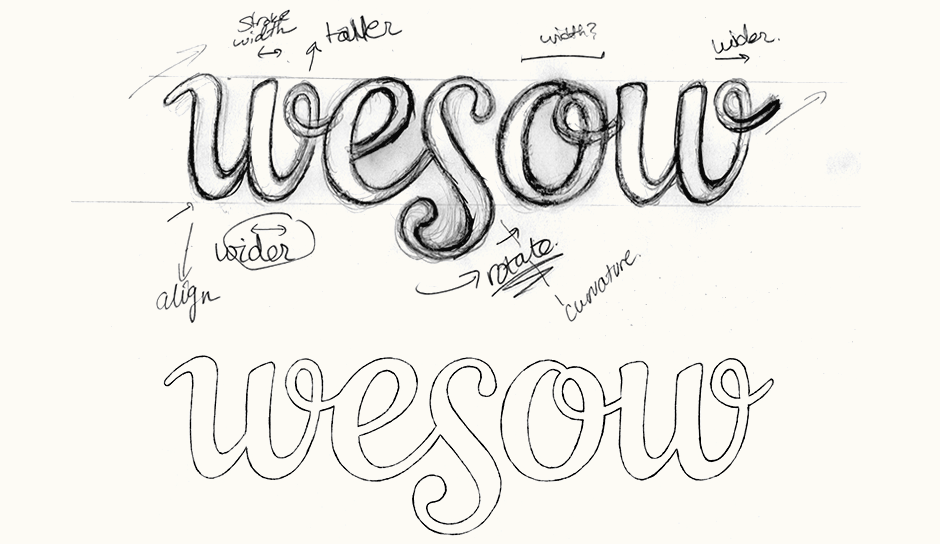 stroke
width
taller
width?
wider.
wesow
wider
align
rotate.
curvature.
wesow